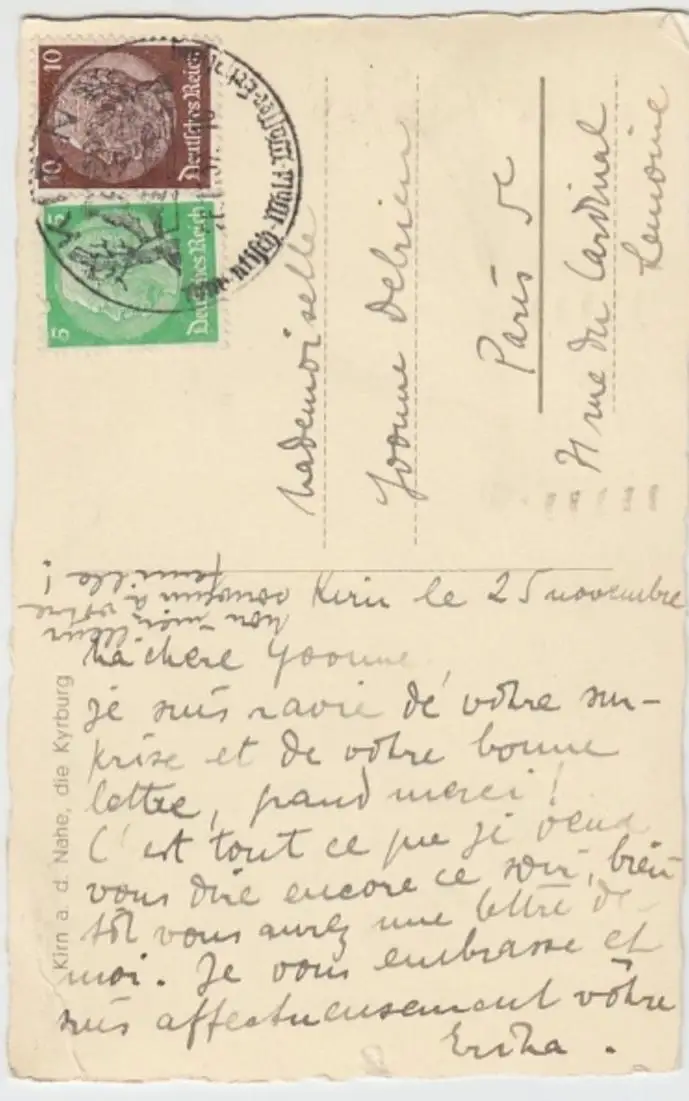 10
10
Deutsches Reich
5
5
Deutsches Reich
Mademoiselle
Yvonne Debrien
Paris 5e
71 rue du Cardinal
Lemoine
Kirn a. d. Nahe, die Kyrburg
Kirn le 25 novembre
Ma chère Yvonne,
je suis ravie de votre sur-
prise et de votre bonne
lettre, grand merci!
C'est tout ce que je veux
vous dire encore ce soir, bien
tôt vous aurez une lettre de
moi. Je vous embrasse et
suis affectueusement vôtre
Erika.
mon meil
leur
souvenir à votre
famille!